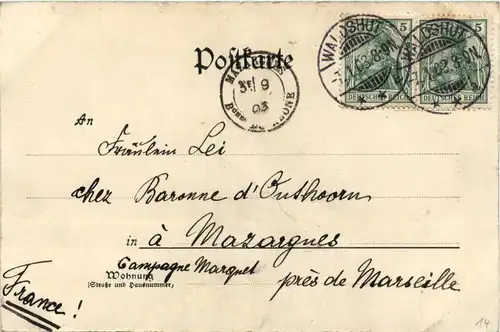 Postkarte
5 5
WALDSHUT WALDSHUT
DEUTSCHES REICH DEUTSCHES REICH
9
03
An
Fräulein Lei
chez Baronne d'Outhoorn
in à Mazargues
Campagne Marquet près de Marseille
Wohnung
(Straße und Hausnummer)
France!
14